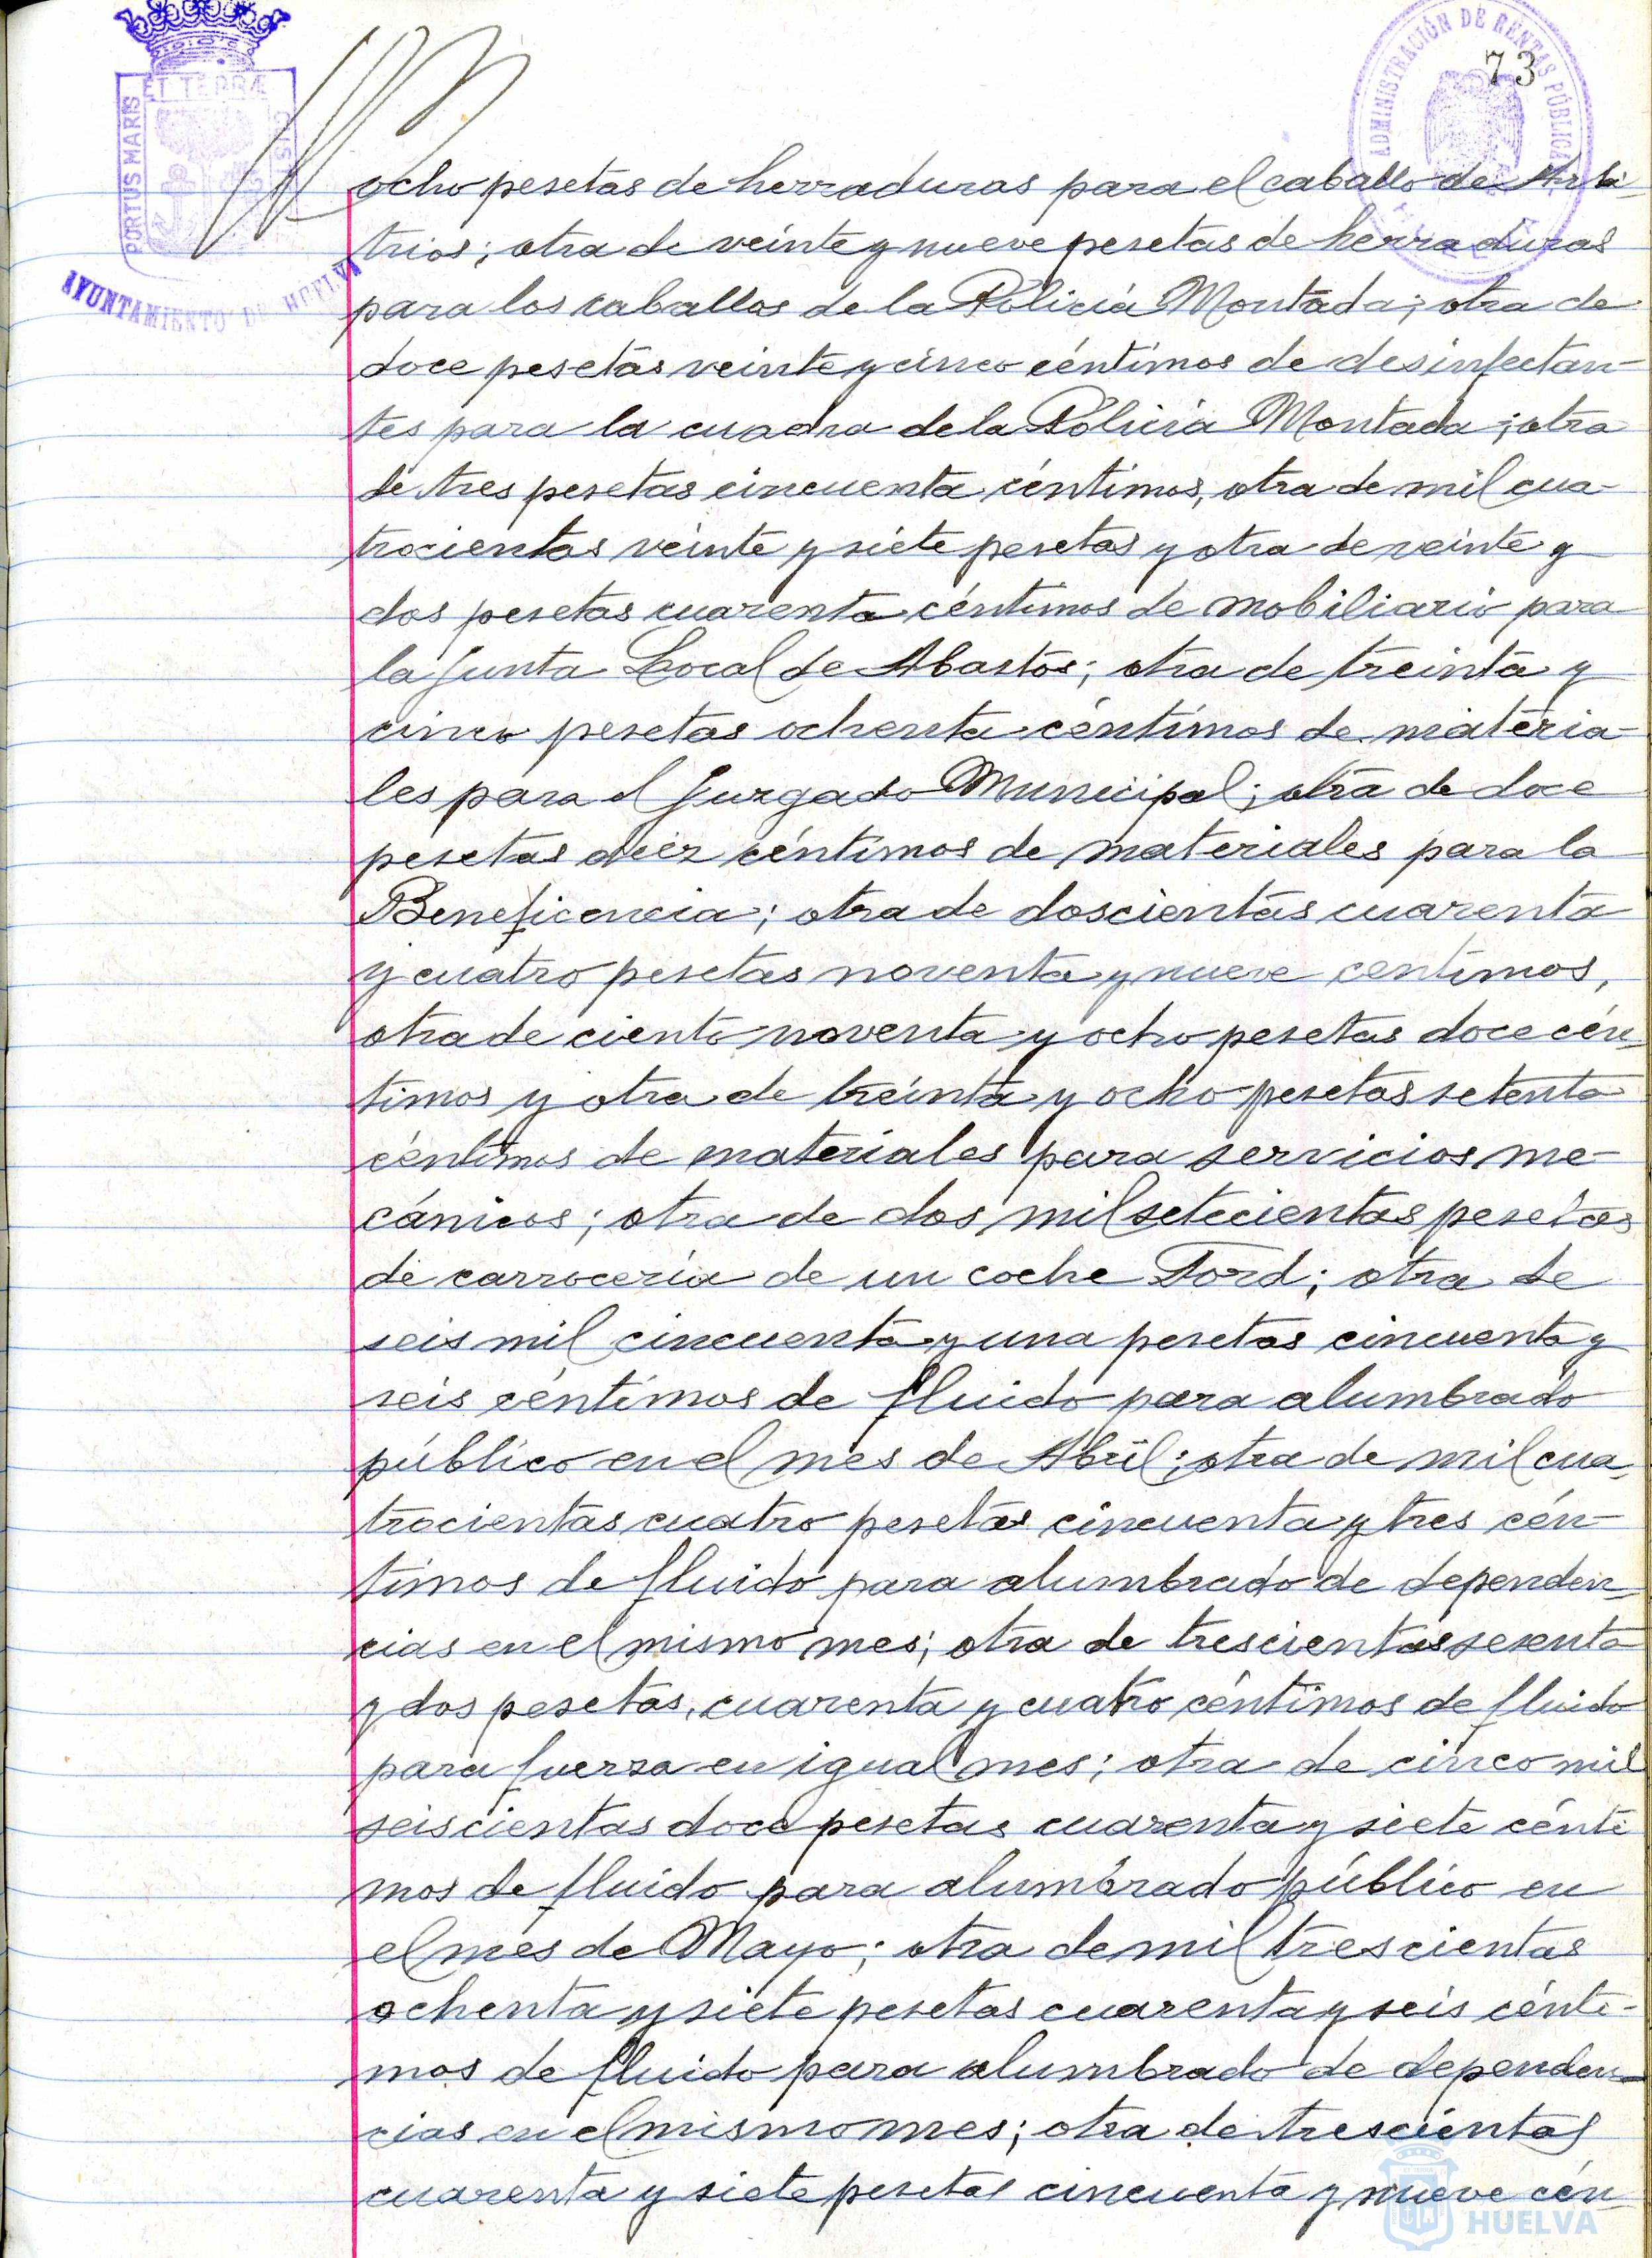 73
ET TERRÆ
PORTUS MARIS
AYUNTAMIENTO DE HUELVA
ADMINISTRACIÓN DE RENTAS PÚBLICAS
ocho pesetas de herraduras para el caballo de Arbi-
trios; otra de veinte y nueve pesetas de herraduras
para los caballos de la Policía Montada; otra de
doce pesetas veinte y cinco céntimos de desinfectan-
tes para la cuadra de la Policía Montada; otra
de tres pesetas cincuenta céntimos, otra de mil cua-
trocientas veinte y siete pesetas y otra de veinte y
dos pesetas cuarenta céntimos de mobiliario para
la Junta Local de Abastos; otra de treinta y
cinco pesetas ochenta céntimos de materia-
les para el Juzgado Municipal; otra de doce
pesetas diez céntimos de materiales para la
Beneficencia; otra de doscientas cuarenta
y cuatro pesetas noventa y nueve centimos,
otra de ciento noventa y ocho pesetas doce cén-
timos y otra de treinta y ocho pesetas setenta
céntimos de materiales para servicios me-
cánicos; otra de dos mil setecientas pesetas
de carrocería de un coche Ford; otra de
seis mil cincuenta y una pesetas cincuenta y
seis céntimos de fluido para alumbrado
público en el mes de Abril; otra de mil cua-
trocientas cuatro pesetas cincuenta y tres cén-
timos de fluido para alumbrado de dependen-
cias en el mismo mes; otra de trescientas sesenta
y dos pesetas, cuarenta y cuatro céntimos de fluido
para fuerza en igual mes; otra de cinco mil
seiscientas doce pesetas cuarenta y siete cénti
mos de fluido para alumbrado público en
el mes de Mayo; otra de mil trescientas
ochenta y siete pesetas cuarenta y seis cénti-
mos de fluido para alumbrado de dependen-
cias en el mismo mes; otra de trescientas
cuarenta y siete pesetas cincuenta y nueve cén-
HUELVA